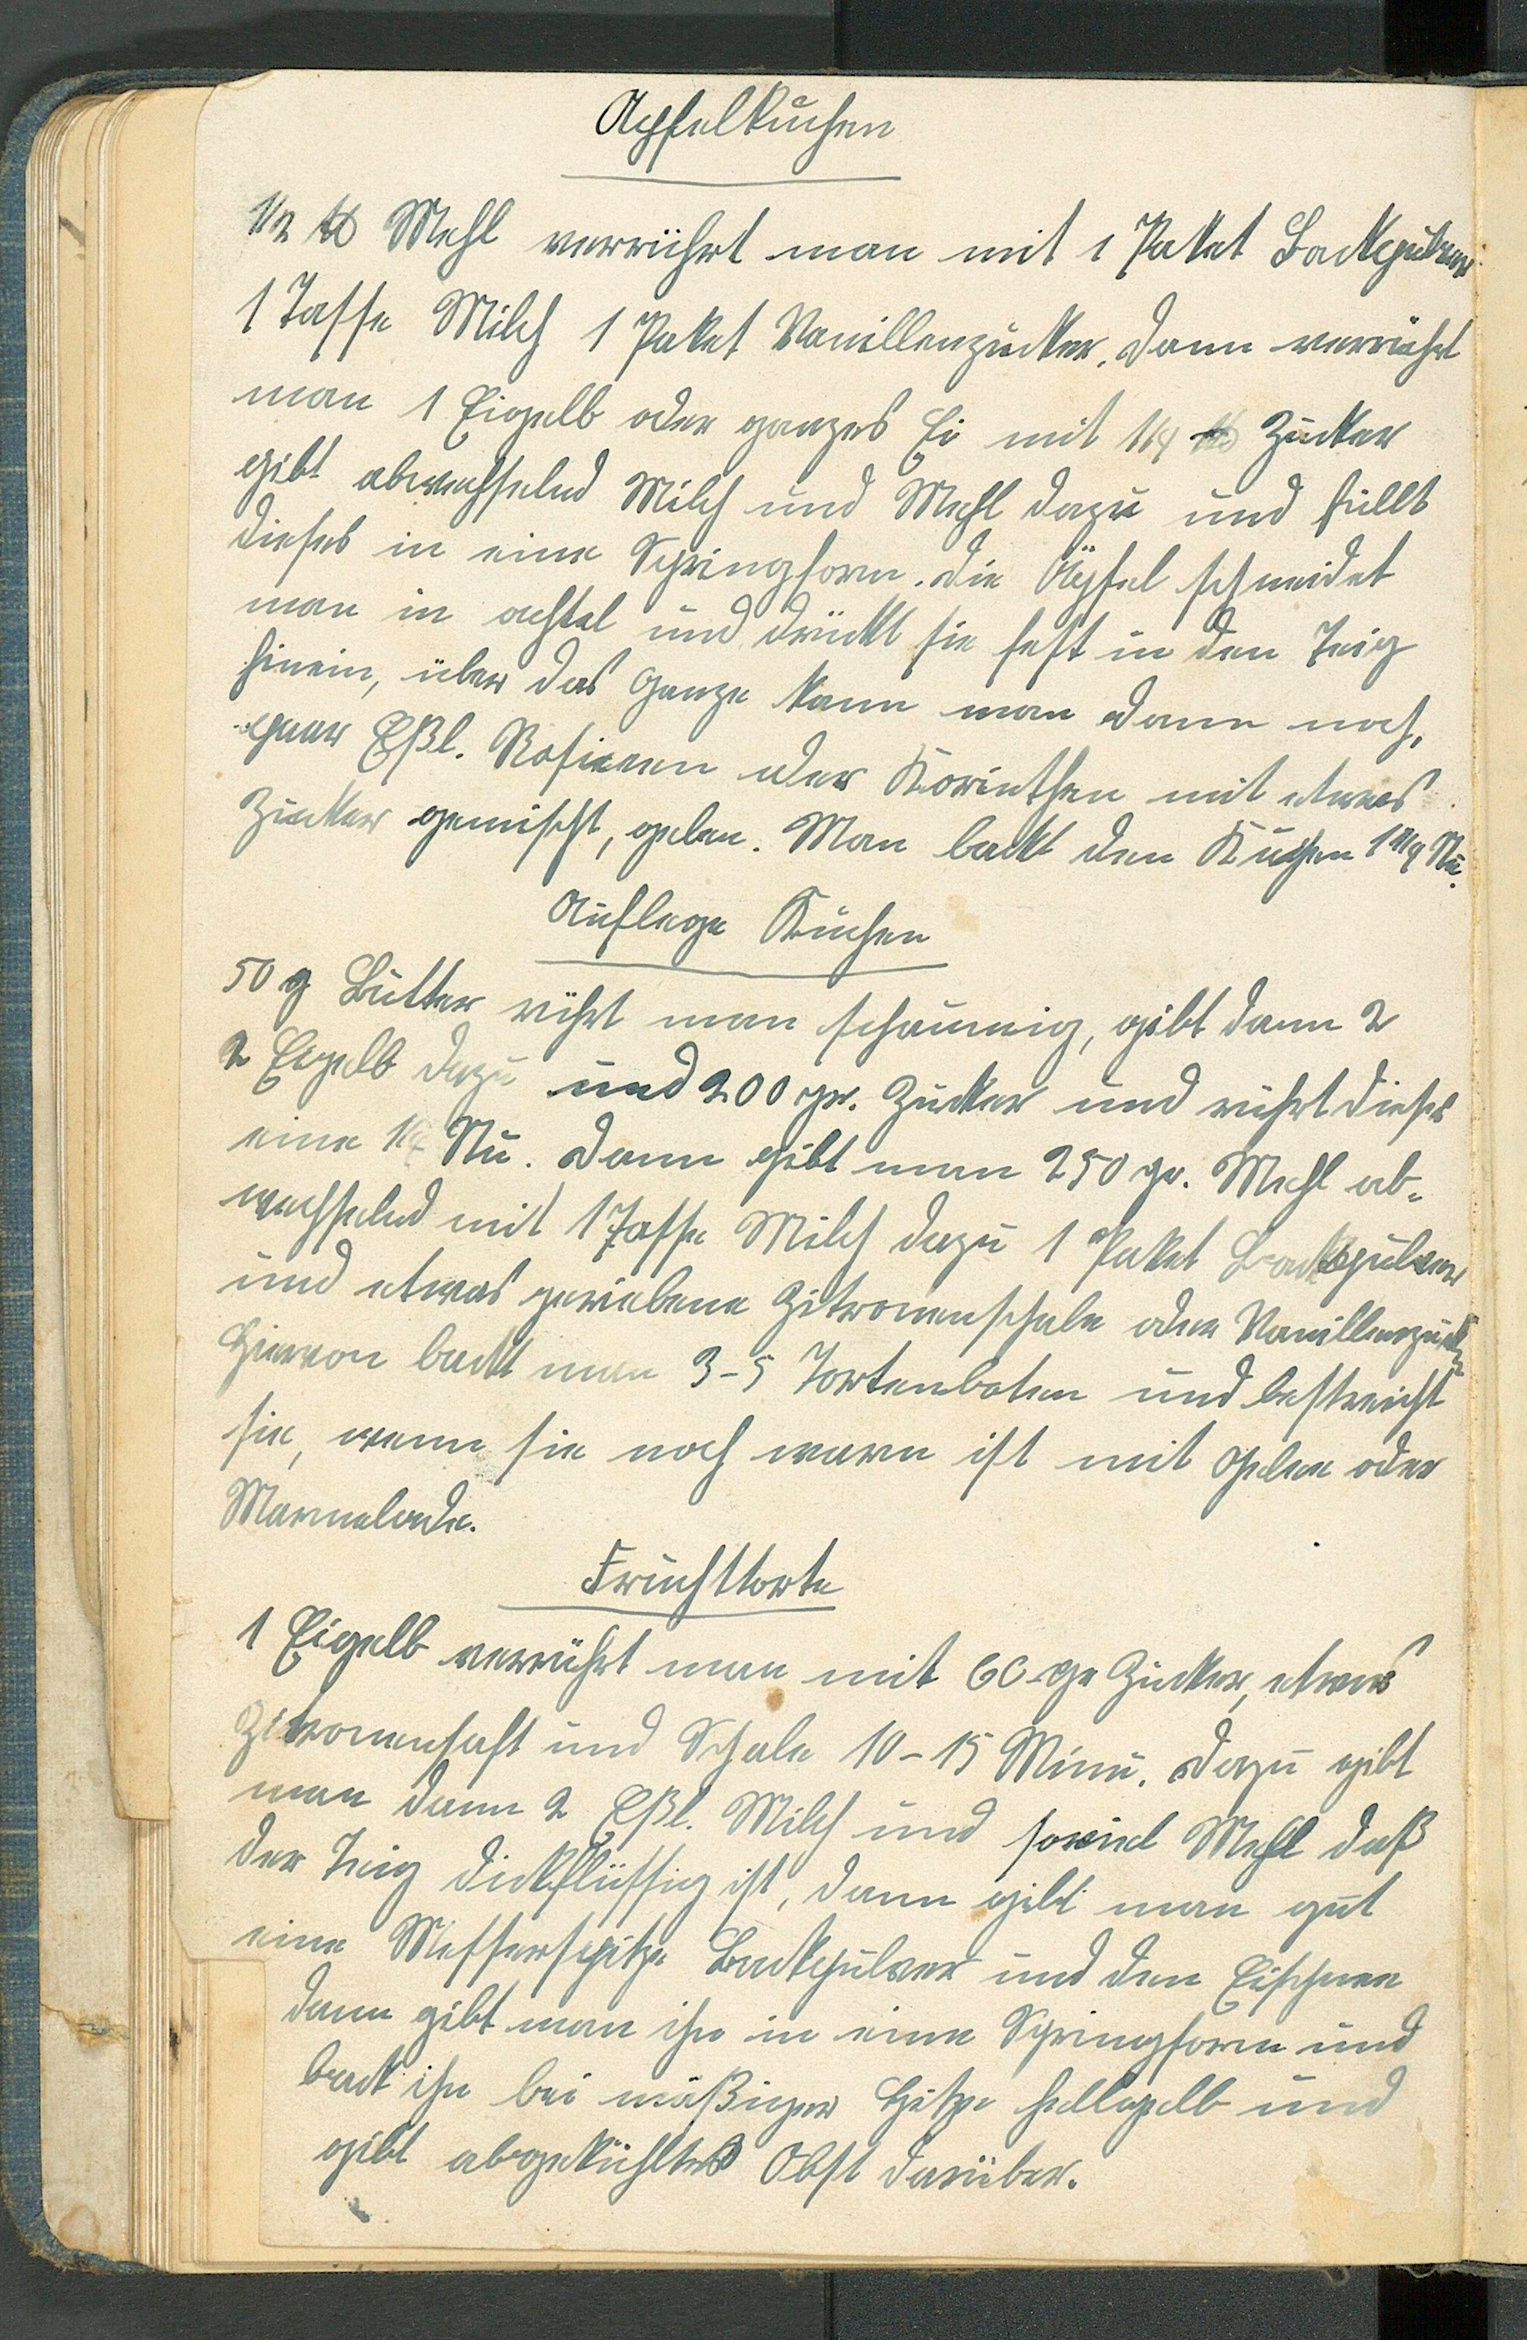 Apfelkuchen
1/2 ℔ Mehl verrührt man mit 1 Paket Backpulver
1 Tasse Milch 1 Paket Vanillenzucker, dann verrührt
man 1 Eigelb oder ganzes Ei mit 1/4 ℔ Zucker
gibt abwechselnd Milch und Mehl dazu und füllt
dieses in eine Springform. Die Äpfel schneidet
man in achtel und drückt sie fest in den Teig
hinein, über das Ganze kann man dann noch,
paar Eßl. Rosienen oder Korinthen mit etwas
Zucker gemischt, geben. Man backt den Kuchen 1 1/4 Stu.
Auflege Kuchen
50 g Butter rührt man schaumig, gibt dann 2
2 Eigelb dazu und 200 gr. Zucker und rührt dieses
eine 1/4 Stu. Dann gibt man 250 gr. Mehl ab-
wechselnd mit 1 Tasse Milch dazu 1 Paket Backpulver
und etwas geriebene Zitronenschale oder Vanillenzuck
Hiervon backt man 3-5 Tortenboten und bestreicht
sie, wenn sie noch warm ist mit Gelee oder
Marmelade.
Fruchttorte
1 Eigelb verrührt man mit 60 gr Zucker, etwas
Zitronensaft und Schale 10-15 Minu. Dazu gibt
man dann 2 Eßl. Milch und soviel Mehl daß
der Teig dickflüssig ist, dann gibt man gut
eine Messerspitze Backpulver und den Eischnee
dann gibt man ihn in eine Springform und
backt ihn bei mäßiger Hitze hellgelb und
gibt abgekühltes Obst darüber.